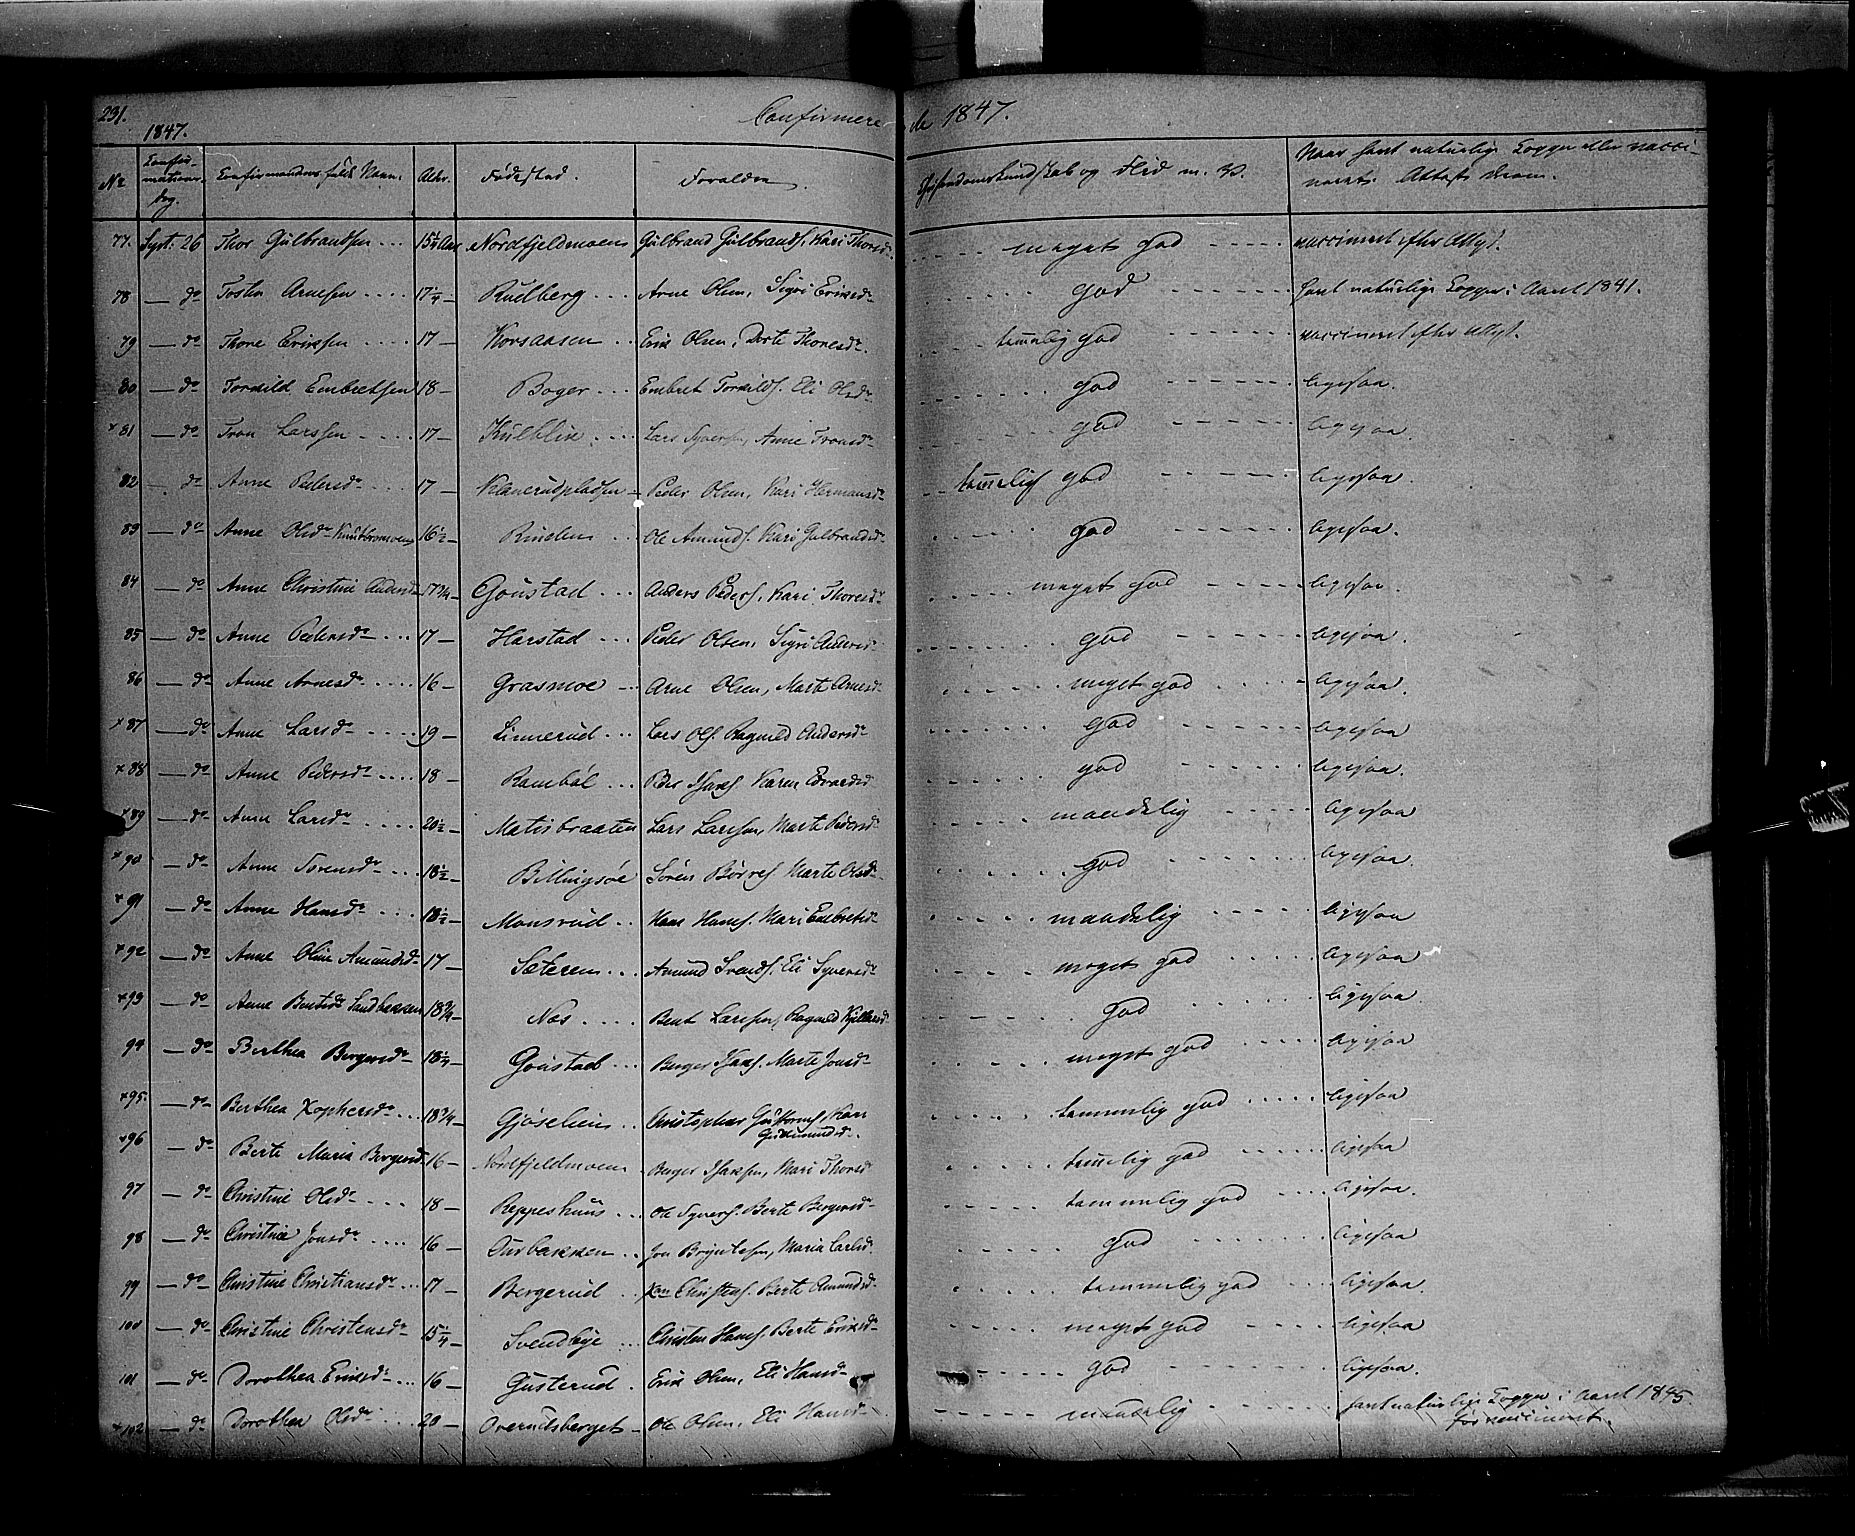 231.
1847.
Confirmerede 1847.
No Confirmations dag. Confirmandens fulde Navn. Alder. Fødested. Forældre. Christendomskundskab og Flid m. V. Naar havt naturlige Kopper eller vaccineret. Attests Datum.
77. Sept. 26 Thor Gulbrandsen ... 15½ Aar Nordfjeldmoens Gulbrand Gulbrands. Kari Thorsdr. meget god vaccineret efter Attst.
78 — do Tosten Arnesen .... 17¼ — Rudberg ... Arne Olsen, Sigri Eriksdr god havt naturlige Kopper i Aaret 1841.
79 — do Thore Eriksen .... 17 — Korsaasen .. Erik Olsen, Dorte Thoresdr. temelig god vaccineret efter Attst.
80 — do Torkild Embretsen 18 — Boger ... Embret Torkilds. Eli Olsdr god ligesaa.
x 81 — do Tron Larssen .... 17 — Kulblik .... Lars Syversen, Anne Tronsdr god ligesaa.
82 — do Anne Pedersdr ... 17 — Klanerudpladsen — Peder Olsen, Kari Hermansdr temelig god ligesaa.
83 — do Anne Olsdr Knutsmoen 16½ — Rinden ... Ole Amunds. Kari Gulbrandsdr god ligesaa.
84 — do Anne Christine Andersdr 17¾ — Goustad ... Anders Peders, Kari Thoresdr meget god ligesaa.
85 — do Anne Pedersdr ... 17 — Harstad ... Peder Olsen, Sigri Andersdr god ligesaa.
86 — do Anne Arnesdr ..... 16 — Grasmoe ... Arne Olsen, Marte Arnesdr meget god ligesaa.
x 87 — do Anne Larsdr ..... 19 — Linnerud ... Lars Ols. Ragnild Andersdr god ligesaa
x 88 — do Anne Pedersdr .... 18 — Rambøl ... Peder Hans. Karen Edvardsdr god ligesaa.
x 89 — do Anne Larsdr .... 20½ — Matisbraaten Lars Larssen, Marte Pedersdr maadelig ligesaa
x 90 — do Anne Sørensdr ... 18½ — Billingsøe Søren Børres. Marte Olsdr god ligesaa.
x 91 — do Anne Hansdr ... 18½ — Monsrud .. Hans Hans. Mari Embretsdr maadelig ligesaa
x 92 — do Anne Oline Amundsdr 17 — Sæteren ... Amund Svends. Eli Syversdr meget god ligesaa
x 93 — do Anne Bentsdr Sandbakken 18¾ — Næs .... Bent Larssen, Ragnild god ligesaa
94 — do Berthea Bergersdr 18¼ — Goustad ... Berger Hans. Marte Jonsdr meget god ligesaa
x 95. — do Berthea Xophersdr ... 18¾ — Gjøselien .. Christopher Guttorms, Kari
Gudmundsdr. temmelig god ligesaa
x 96 — do Berte Maria Bergersdr 16 — Nordfjeldmoen Berger Hansen, Mari Thorsdr temelig god ligesaa
97 — do Christine Olsdr .... 18 — Reppeshuus ... Ole Syvers. Berte Bergersdr temmelig god ligesaa.
98 — do Christine Jonsdr ..... 16 — Aurbakken .. Jon Bryntesen, Maria Carlsd. god ligesaa
99 — do Christine Christiansdr ... 17 — Bergerud .. Christens. Berte Amundsd. temmelig god ligesaa.
100 — do Christine Christensdr 15¼ — Svendbye ... Christen Hans. Berte Eriksdr meget god ligesaa
101 — do Dorothea Eriksdr ... 16 — Gusterud . Erik Olsen, Eli Hansdr god ligesaa
x 102 — do Dorothea Olsdr .... 20 — Overudsberget — Ole Olsen, Eli Hansdr maadelig havt naturlige Kopper i Aaret 1845
før vaccineret.